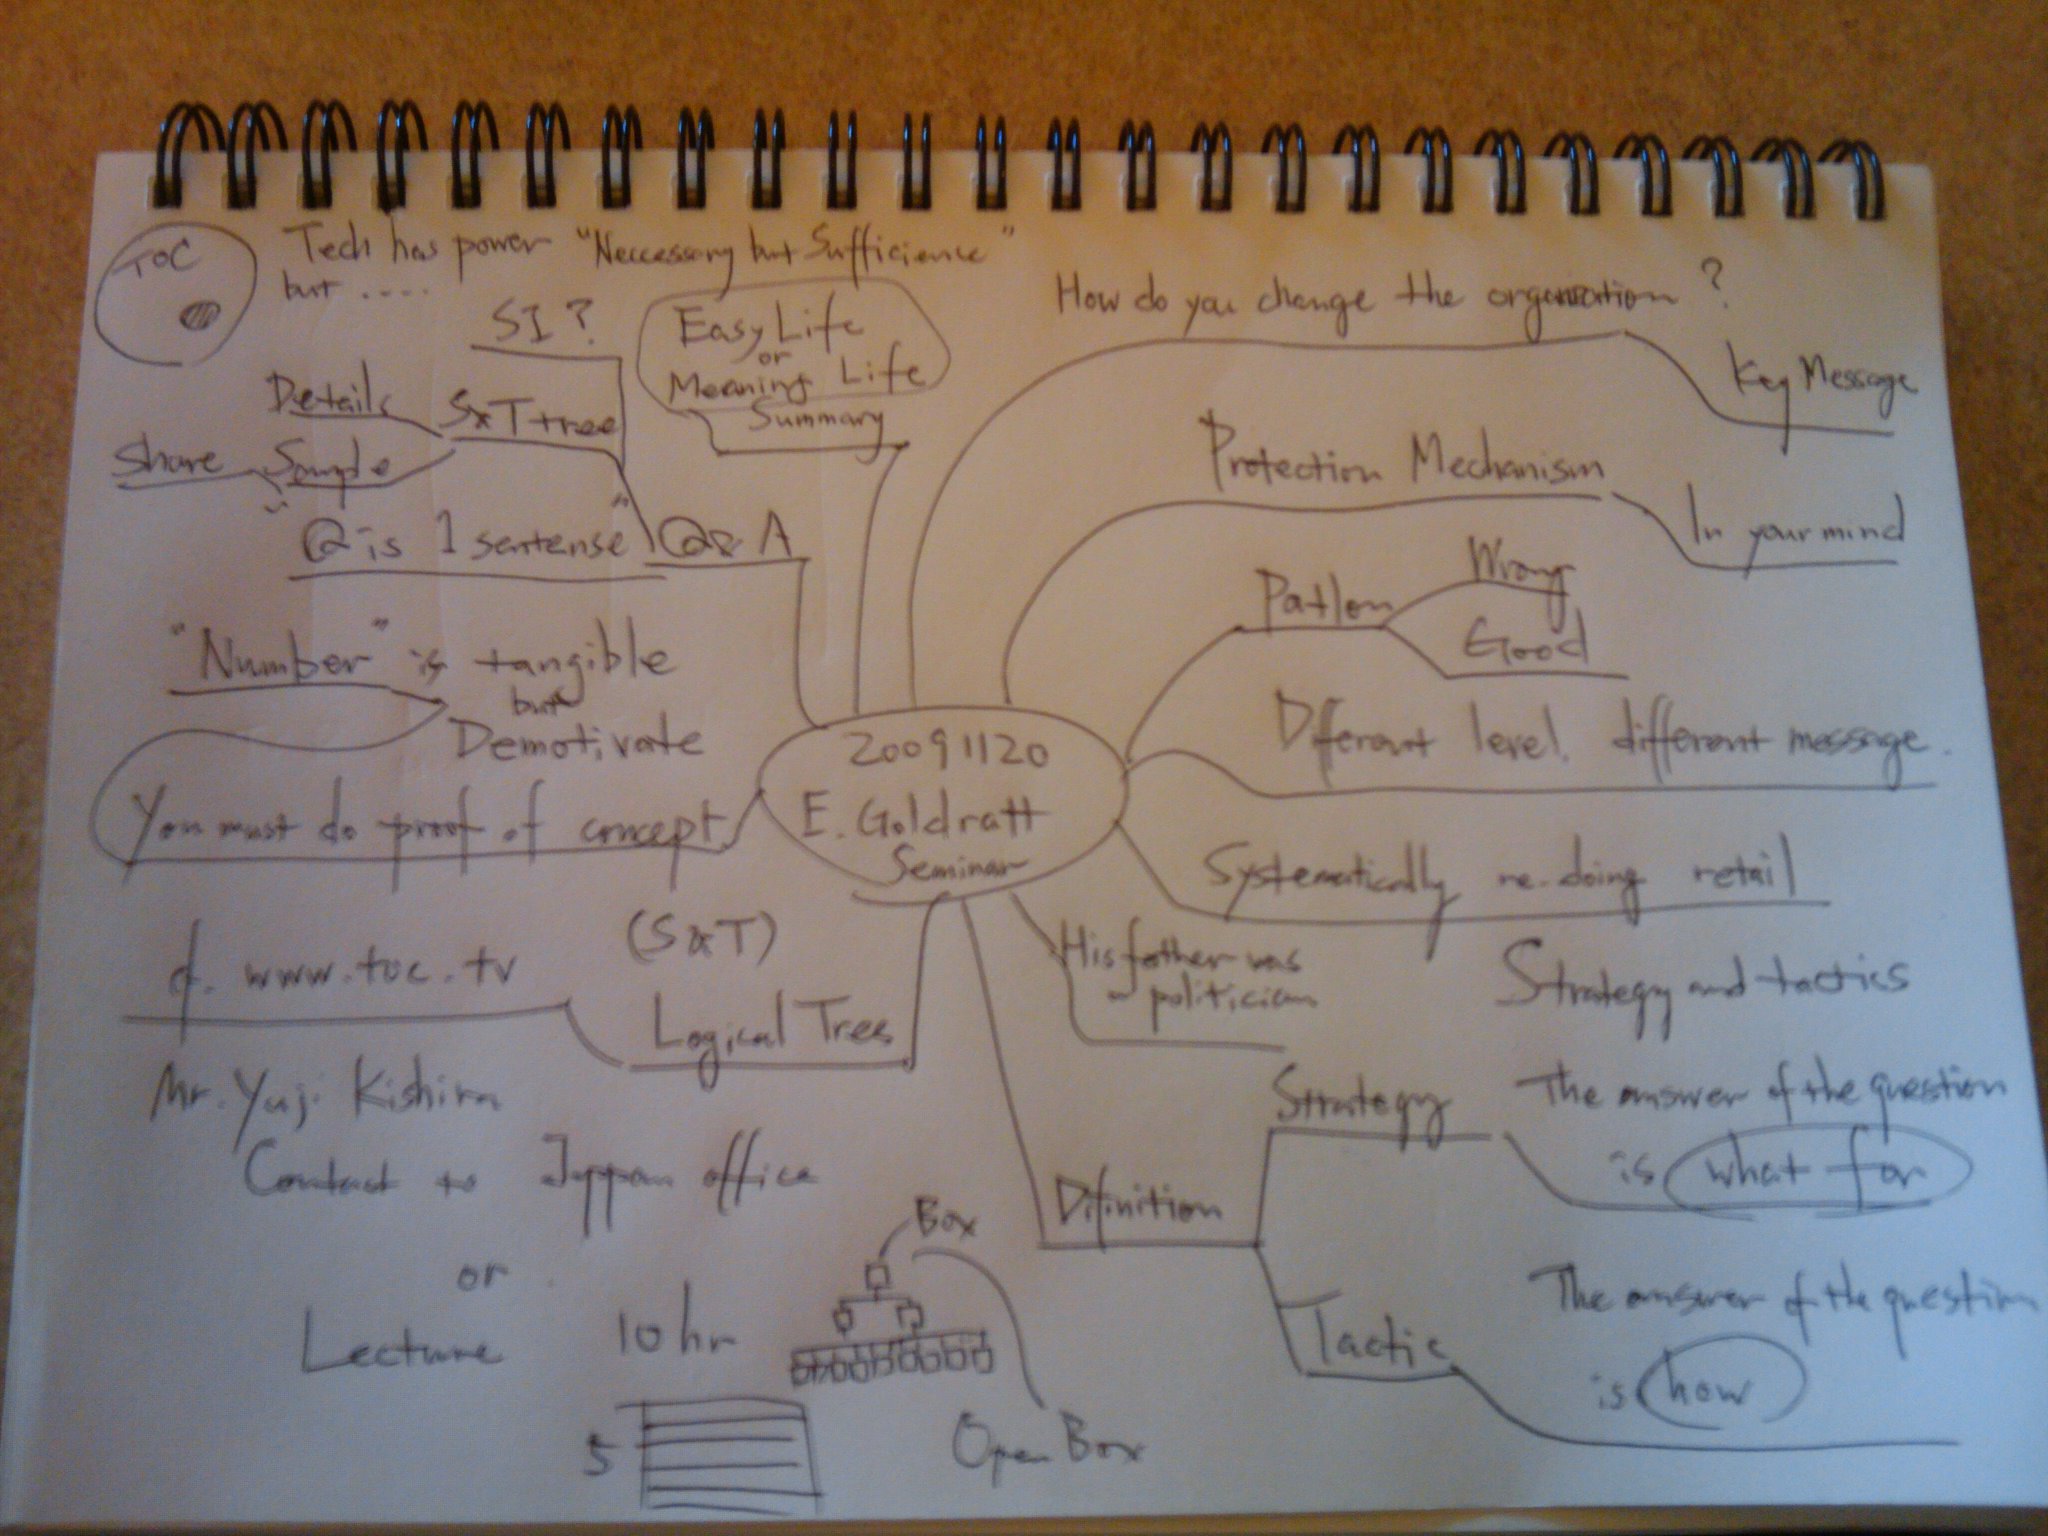 TOC
Tech has power "Neccessary but Sufficience"
but ....
SI?
Easy Life
or
Meaning Life
Summary
Details
S&T tree
Share
Sample
"Q is 1 sentense"
Q&A
"Number" is tangible
but
Demotivate
You must do proof of concept
20091120
E. Goldratt
Seminar
How do you change the organization?
Key Message
Protection Mechanism
In your mind
Patlen
Wrong
Good
Dfferent level. different message.
Systematically re-doing retail
His father was
politician
Strategy and tactics
(S&T)
Logical Trees
cf. www.toc.tv
Mr. Yuji Kishira
Contact to Jappan office
or
Lecture
10hr
Box
5
Open Box
Difinition
Strategy
The answer of the question
is what for
Tactic
The answer of the question
is how